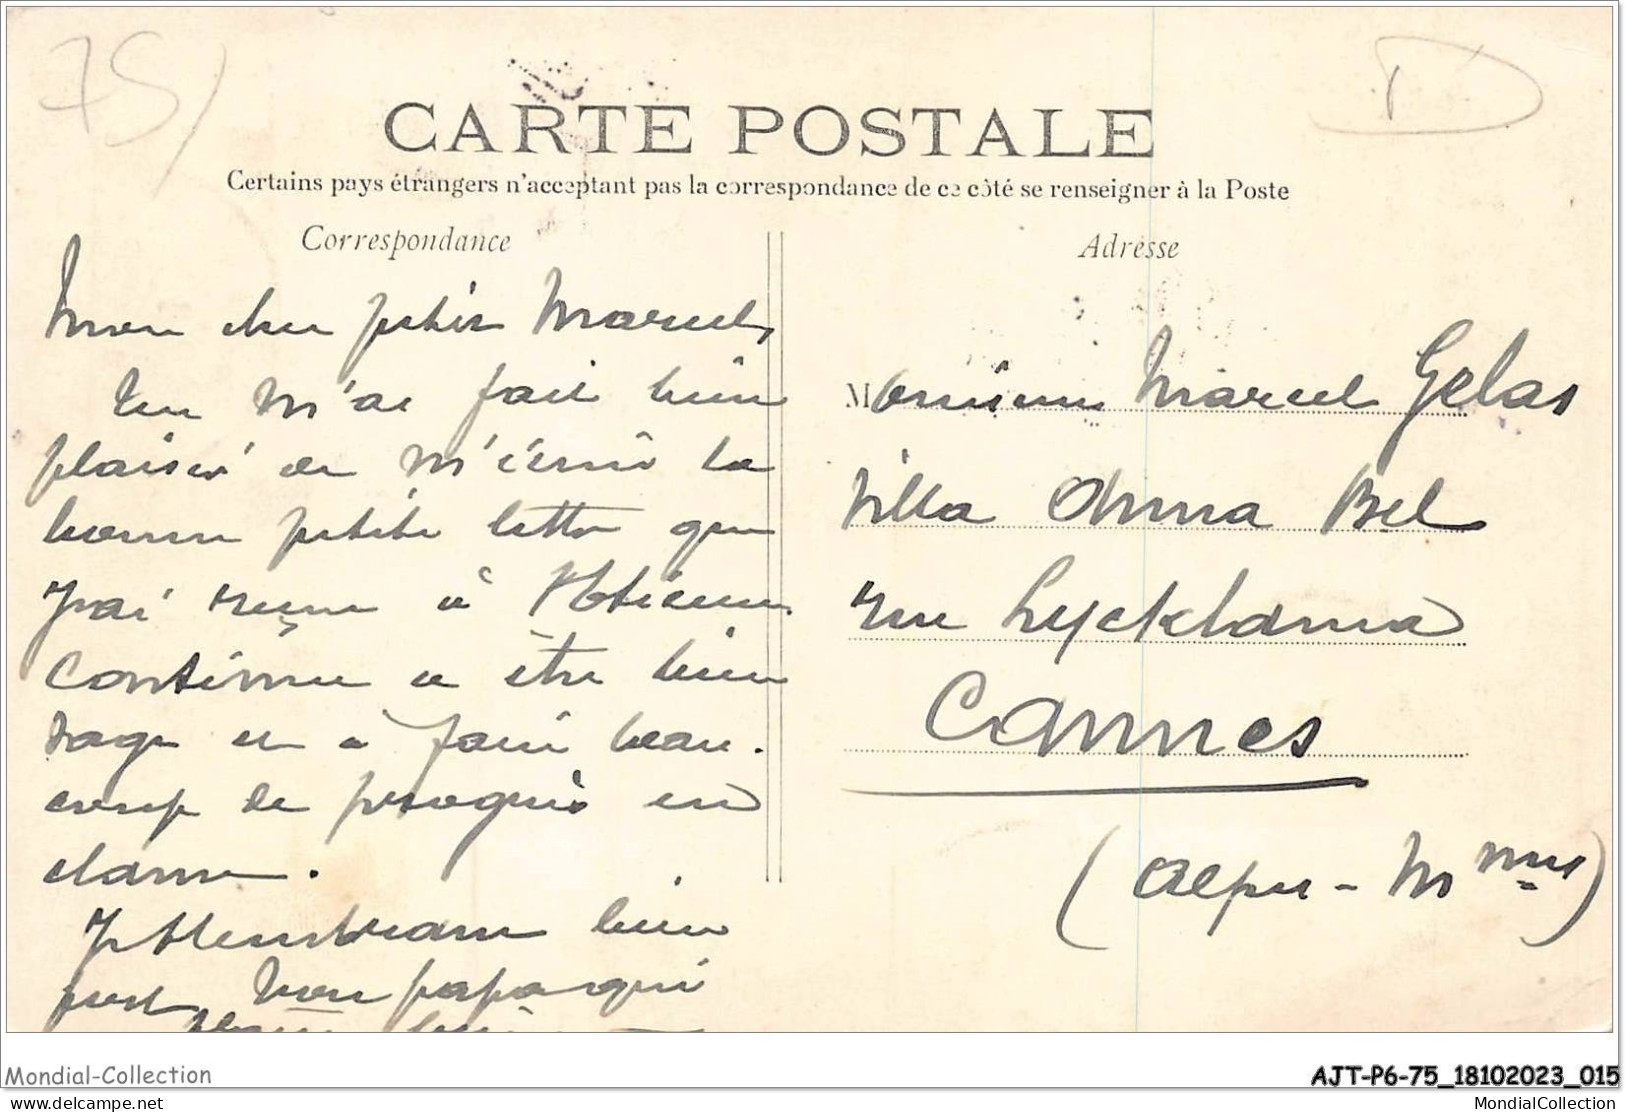 75/
CARTE POSTALE
Certains pays étrangers n'acceptant pas la correspondance de ce côté se renseigner à la Poste
Correspondance
Adresse
Mon cher petit Marcel,
Tu m'as fait bien
plaisir de m'écrire la
bonne petite lettre que
j'ai reçue à
Continue à être bien
sage et à faire beau-
coup de progrès en
classe.
Je t'embrasse bien
fort, ton papa qui
Monsieur Marcel Gelas
Villa Anna Bel
rue Lycklama
Cannes
(Alpes-Mmes)
Mondial-Collection
AJT-P6-75_18102023_015
delcampe.net
MondialCollection